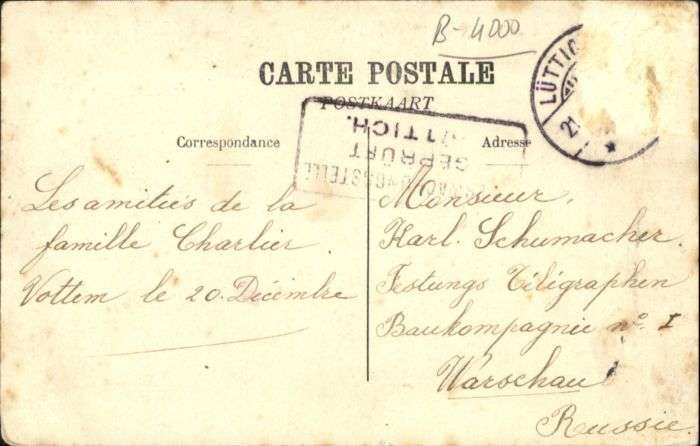 B-4000
CARTE POSTALE
POSTKAART
Correspondance
Adresse
LÜTTICH
21
GEPRÜFT
Les amitiés de la
famille Charlier.
Vottem le 20 Décembre
Monsieur,
Karl. Schumacher.
Festungs Téligraphen
Baukompagnie n° I
Warschau
Russie.